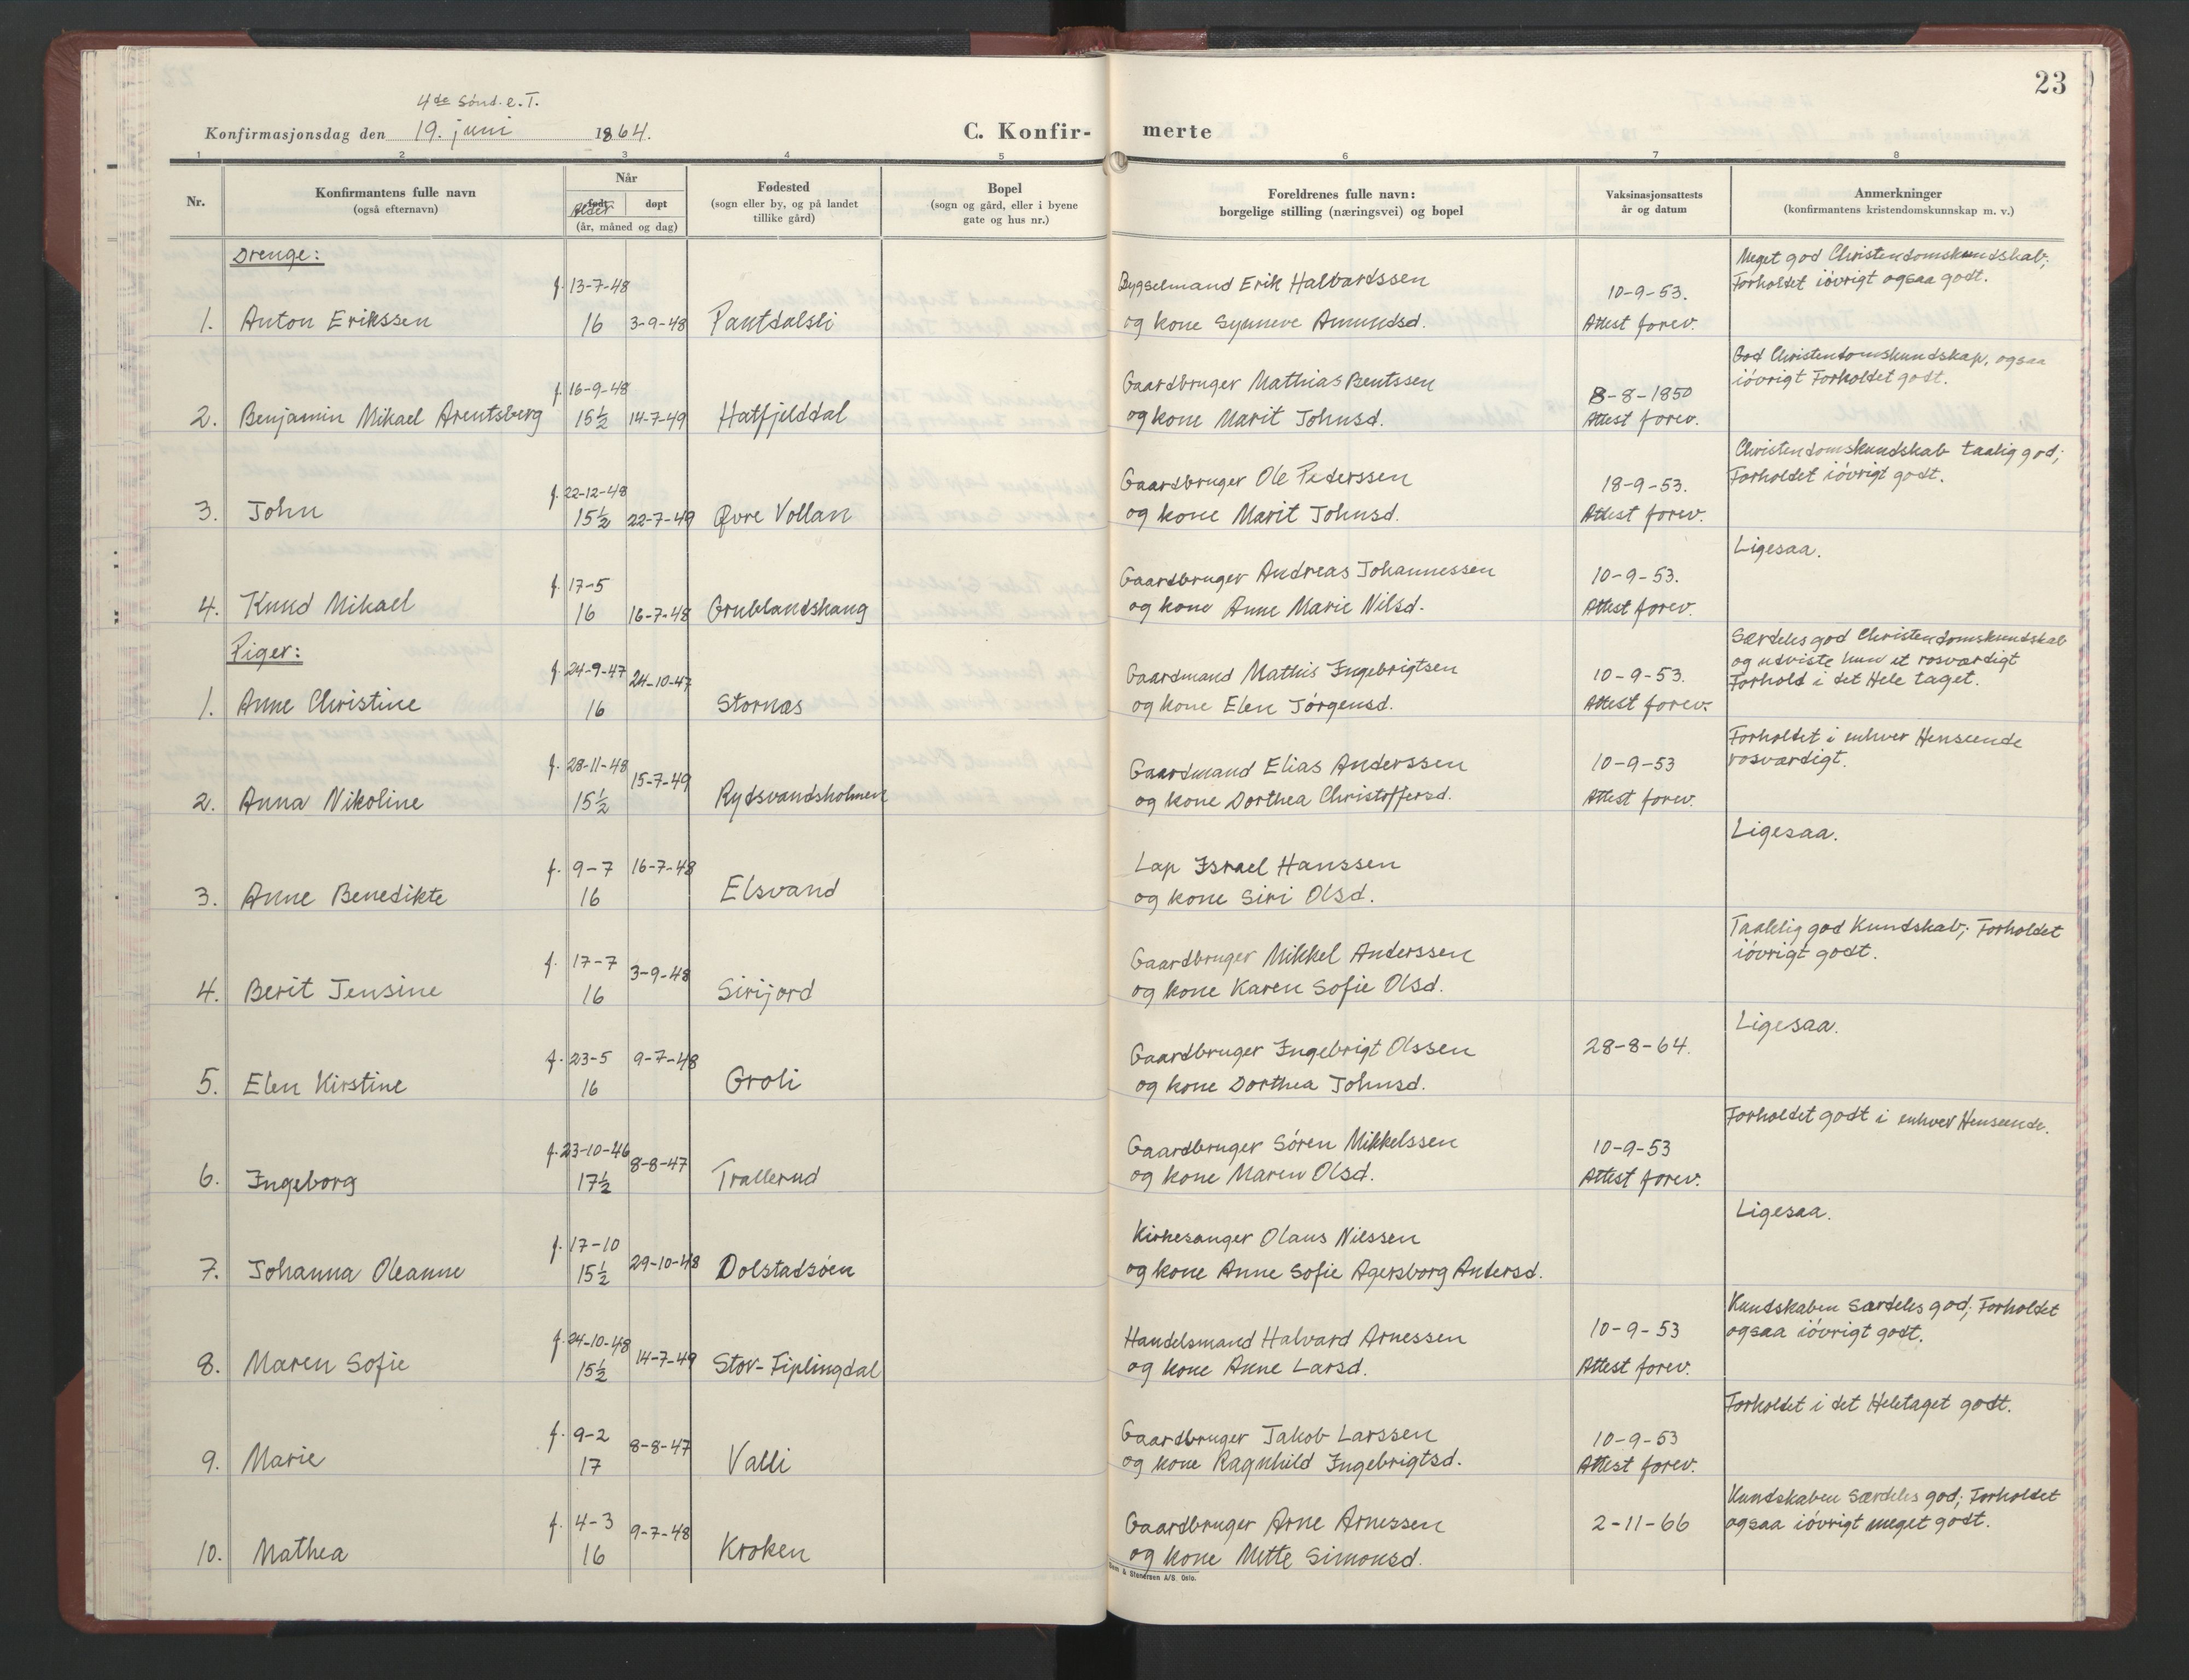 23
4de Sönd. e. T.
Konfirmasjonsdag den 19. juni 1864.
C. Konfir-
merte
1 2 3 4 5 6 7 8
Nr.
Konfirmantens fulle navn
(også efternavn)
Når
født
Alder
døpt
(år, måned og dag)
Fødested
(sogn eller by, og på landet
tillike gård)
Bopel
(sogn og gård, eller i byene
gate og hus nr.)
Foreldrenes fulle navn:
borgelige stilling (næringsvei) og bopel
Vaksinasjonsattests
år og datum
Anmerkninger
(konfirmantens kristendomskunnskap m. v.)
Drenge:
f. 13-7-48 Bygselmand Erik Halvardssen 10-9-53. Meget god Christendomskundskab;
Forholdet iövrigt ogsaa godt.
1. Anton Erikssen 16 3-9-48 Pantdalsli og kone Synneve Amundsd. Attest forev.
f. 16-9-48 Gaardbruger Mathias Bentssen 8-8-1850 God Christendomskundskap, ogsaa
iövrigt Forholdet godt.
2. Benjamin Mikael Arentsberg 15½ 14-7-49 Hatfjelddal og kone Marit Johnsd. Attest forev.
f. 22-12-48 Gaardbruger Ole Pederssen 18-9-53. Christendomskundskab taalig god;
Forholdet iövrigt godt.
3. John 15½ 22-7-49 Øvre Vollan og kone Marit Johnsd. Attest forev.
f. 17-5 Gaardbruger Andreas Johannessen 10-9-53. Ligesaa.
4. Knud Mikael 16 16-7-48 Grublandshaug og kone Anne Marie Nilsd. Attest forev.
Piger:
f. 24-9-47 24-10-47 Gaardmand Mathis Ingebrigtsen 10-9-53. Særdeles god Christendomskundskab
og udviste hun et rosværdigt
Forhold i det Hele taget.
1. Anne Christine 16 Stornæs og kone Elen Jörgensd. Attest forev.
f. 28-11-48 15-7-49 Gaardmand Elias Anderssen 10-9-53 Forholdet i enhver Henseende
rosværdigt.
2. Anna Nikoline 15½ Rydsvandsholmen og kone Dorthea Christoffersd. Attest forev.
f. 9-7 16-7-48 Lap Israel Hanssen Ligesaa.
3. Anne Benedikte 16 Elsvand og kone Siri Olsd.
f. 17-7 3-9-48 Gaardbruger Mikkel Anderssen Taalelig god Kundskab; Forholdet
iövrigt godt.
4. Berit Jensine 16 Sirijord og kone Karen Sofie Olsd.
f. 23-5 9-7-48 Gaardbruger Ingebrigt Olssen 28-8-64. Ligesaa.
5. Elen Kirstine 16 Groli og kone Dorthea Johnsd.
f. 23-10-46 8-8-47 Gaardbruger Sören Mikkelssen 10-9-53 Forholdet godt i enhver Henseende.
6. Ingeborg 17½ Trallerud og kone Maren Olsd. Attest forev.
f. 17-10 29-10-48 Kirkesanger Olaus Nilssen Ligesaa.
7. Johanna Oleanne 15½ Dolstadsöen og kone Anne Sofie Agersborg Andersd.
f. 24-10-48 14-7-49 Handelsmand Halvard Arnessen 10-9-53 Kundskaben særdeles god; Forholdet
ogsaa iövrigt godt.
8. Maren Sofie 15½ Stor-Fiplingdal og kone Anne Larsd. Attest forev.
f. 9-2 8-8-47 Gaardbruger Jakob Larssen 10-9-53 Forholdet i det Heletaget godt.
9. Marie 17 Valli og kone Ragnhild Ingebrigtsd. Attest forev.
f. 4-3 9-7-48 Gaardbruger Arne Arnessen 2-11-66 Kundskaben særdeles god; Forholdet
ogsaa iövrigt meget godt.
10. Mathea 16 Kroken og kone Mette Simonsd.
& Stenersen A/S. Oslo.